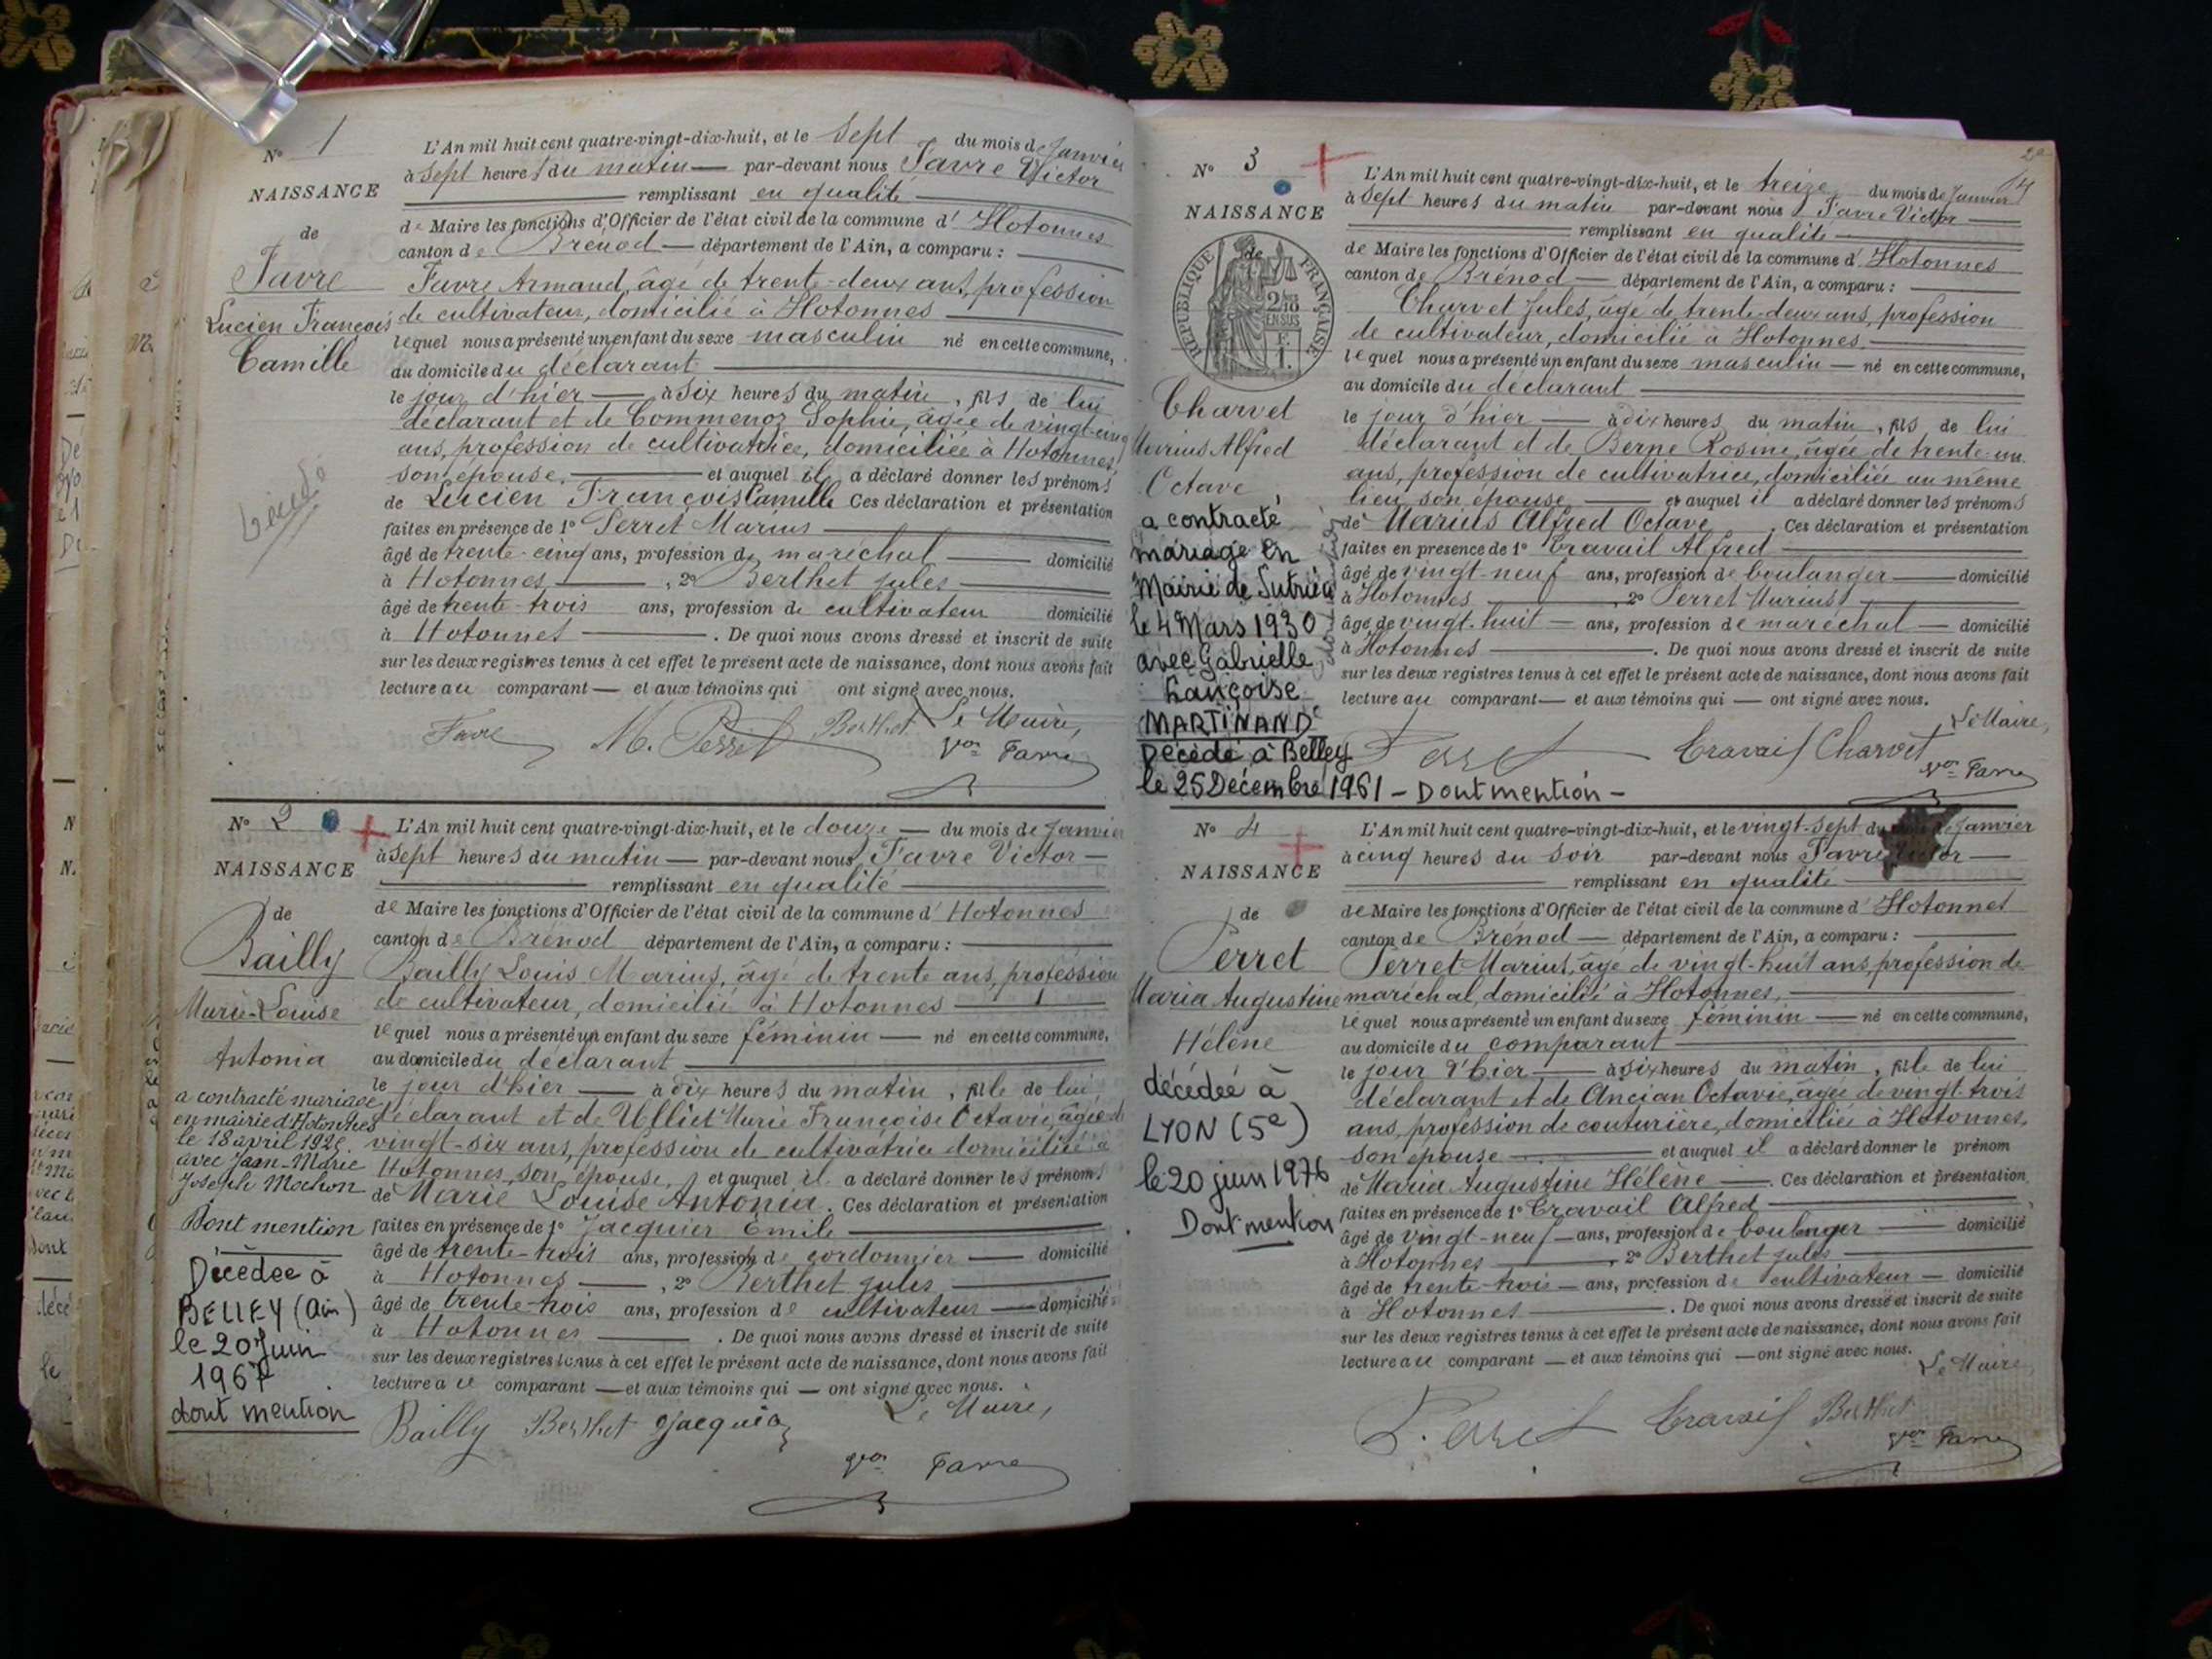 N° 1
NAISSANCE
de
Favre
Lucien François
Camille
Décédé
L'An mil huit cent quatre-vingt-dix-huit, et le sept du mois de Janvier
à sept heures du matin — par-devant nous Favre Victor
remplissant en qualité
de Maire les fonctions d'Officier de l'état civil de la commune d' Hotonnes
canton de Brénod — département de l'Ain, a comparu :
Favre Armand, âgé de trente-deux ans, profession
de cultivateur, domicilié à Hotonnes
lequel nous a présenté un enfant du sexe masculin né en cette commune,
au domicile du déclarant
le jour d'hier — à six heures du matin, fils de lui
déclarant et de Commenoz Sophie, âgée de vingt-cinq
ans, profession de cultivatrice, domiciliée à Hotonnes,
son épouse. — et auquel il a déclaré donner les prénoms
de Lucien François Camille Ces déclaration et présentation
faites en présence de 1° Perret Marius
âgé de trente-cinq ans, profession de maréchal — domicilié
à Hotonnes — , 2° Berthet Jules
âgé de trente-trois ans, profession de cultivateur domicilié
à Hotonnes — . De quoi nous avons dressé et inscrit de suite
sur les deux registres tenus à cet effet le présent acte de naissance, dont nous avons fait
lecture au comparant — et aux témoins qui ont signé avec nous.
Favre M. Perret Berthet Le Maire,
Vor Favre
N° 2
NAISSANCE
de
Bailly
Marie-Louise
Antonia
a contracté mariage
en mairie d'Hotonnes
le 18 avril 192
avec Jean-Marie
Joseph Mochon
Dont mention
Décédée à
BELLEY (Ain)
le 20 Juin
1967
dont mention
L'An mil huit cent quatre-vingt-dix-huit, et le douze — du mois de Janvier
à sept heures du matin — par-devant nous Favre Victor —
remplissant en qualité
de Maire les fonctions d'Officier de l'état civil de la commune d' Hotonnes
canton de Brénod département de l'Ain, a comparu :
Bailly Louis Marius, âgé de trente ans, profession
de cultivateur, domicilié à Hotonnes
lequel nous a présenté un enfant du sexe féminin — né en cette commune,
au domicile du déclarant
le jour d'hier — à dix heures du matin, fille de lui
déclarant et de Ulliet Marie Françoise Octavie, âgée de
vingt-six ans, profession de cultivatrice domiciliée à
Hotonnes, son épouse, et auquel il a déclaré donner les prénoms
de Marie Louise Antonia. Ces déclaration et présentation
faites en présence de 1° Jacquier Emile
âgé de trente-trois ans, profession de cordonnier — domicilié
à Hotonnes — , 2° Berthet Jules
âgé de trente-trois ans, profession de cultivateur — domicilié
à Hotonnes — . De quoi nous avons dressé et inscrit de suite
sur les deux registres tenus à cet effet le présent acte de naissance, dont nous avons fait
lecture au comparant — et aux témoins qui — ont signé avec nous.
Bailly Berthet Jacquier Le Maire,
Vor Favre
N° 3
NAISSANCE
de
RÉPUBLIQUE FRANÇAISE
2/10 EN SUS
F. 1.
Charvet
Marius Alfred
Octave
a contracté
mariage en
Mairie de Sutrieu
le 4 Mars 1930
avec Gabrielle
Françoise
MARTINAND
Décédé à Belley
le 25 Décembre 1961 - Dont mention -
L'An mil huit cent quatre-vingt-dix-huit, et le treize du mois de Janvier
à sept heures du matin par-devant nous Favre Victor
remplissant en qualité
de Maire les fonctions d'Officier de l'état civil de la commune d' Hotonnes
canton de Brénod — département de l'Ain, a comparu :
Charvet Jules, âgé de trente-deux ans, profession
de cultivateur, domicilié à Hotonnes.
lequel nous a présenté un enfant du sexe masculin — né en cette commune,
au domicile du déclarant
le jour d'hier — à dix heures du matin, fils de lui
déclarant et de Berne Rosine, âgée de trente-un
ans, profession de cultivatrice, domiciliée au même
lieu, son épouse — et auquel il a déclaré donner les prénoms
de Marius Alfred Octave . Ces déclaration et présentation
faites en présence de 1° Travail Alfred
âgé de vingt-neuf ans, profession de boulanger — domicilié
à Hotonnes — , 2° Perret Marius
âgé de vingt-huit — ans, profession de maréchal — domicilié
à Hotonnes — . De quoi nous avons dressé et inscrit de suite
sur les deux registres tenus à cet effet le présent acte de naissance, dont nous avons fait
lecture au comparant — et aux témoins qui — ont signé avec nous.
Perret Travail Charvet Le Maire,
Vor Favre
N° 4
NAISSANCE
de
Perret
Maria Augustine
Hélène
décédée à
LYON (5e)
le 20 juin 1976
Dont mention
L'An mil huit cent quatre-vingt-dix-huit, et le vingt-sept du mois de Janvier
à cinq heures du soir par-devant nous Favre Victor —
remplissant en qualité
de Maire les fonctions d'Officier de l'état civil de la commune d' Hotonnes
canton de Brénod — département de l'Ain, a comparu :
Perret Marius, âgé de vingt-huit ans, profession de
maréchal, domicilié à Hotonnes,
lequel nous a présenté un enfant du sexe féminin — né en cette commune,
au domicile du comparant
le jour d'hier — à six heures du matin, fille de lui
déclarant et de Ancian Octavie, âgée de vingt-trois
ans, profession de couturière, domiciliée à Hotonnes,
son épouse — et auquel il a déclaré donner le prénom
de Maria Augustine Hélène — . Ces déclaration et présentation
faites en présence de 1° Travail Alfred
âgé de vingt-neuf — ans, profession de boulanger — domicilié
à Hotonnes — , 2° Berthet Jules
âgé de trente-trois — ans, profession de cultivateur — domicilié
à Hotonnes — . De quoi nous avons dressé et inscrit de suite
sur les deux registres tenus à cet effet le présent acte de naissance, dont nous avons fait
lecture au comparant — et aux témoins qui — ont signé avec nous.
Le Maire
Perret Travail Berthet
Vor Favre